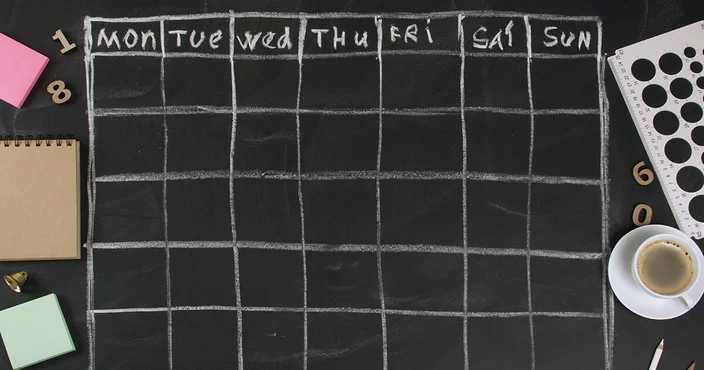 MON TUE Wed THU FRI SAT SUN
1
8
6
0